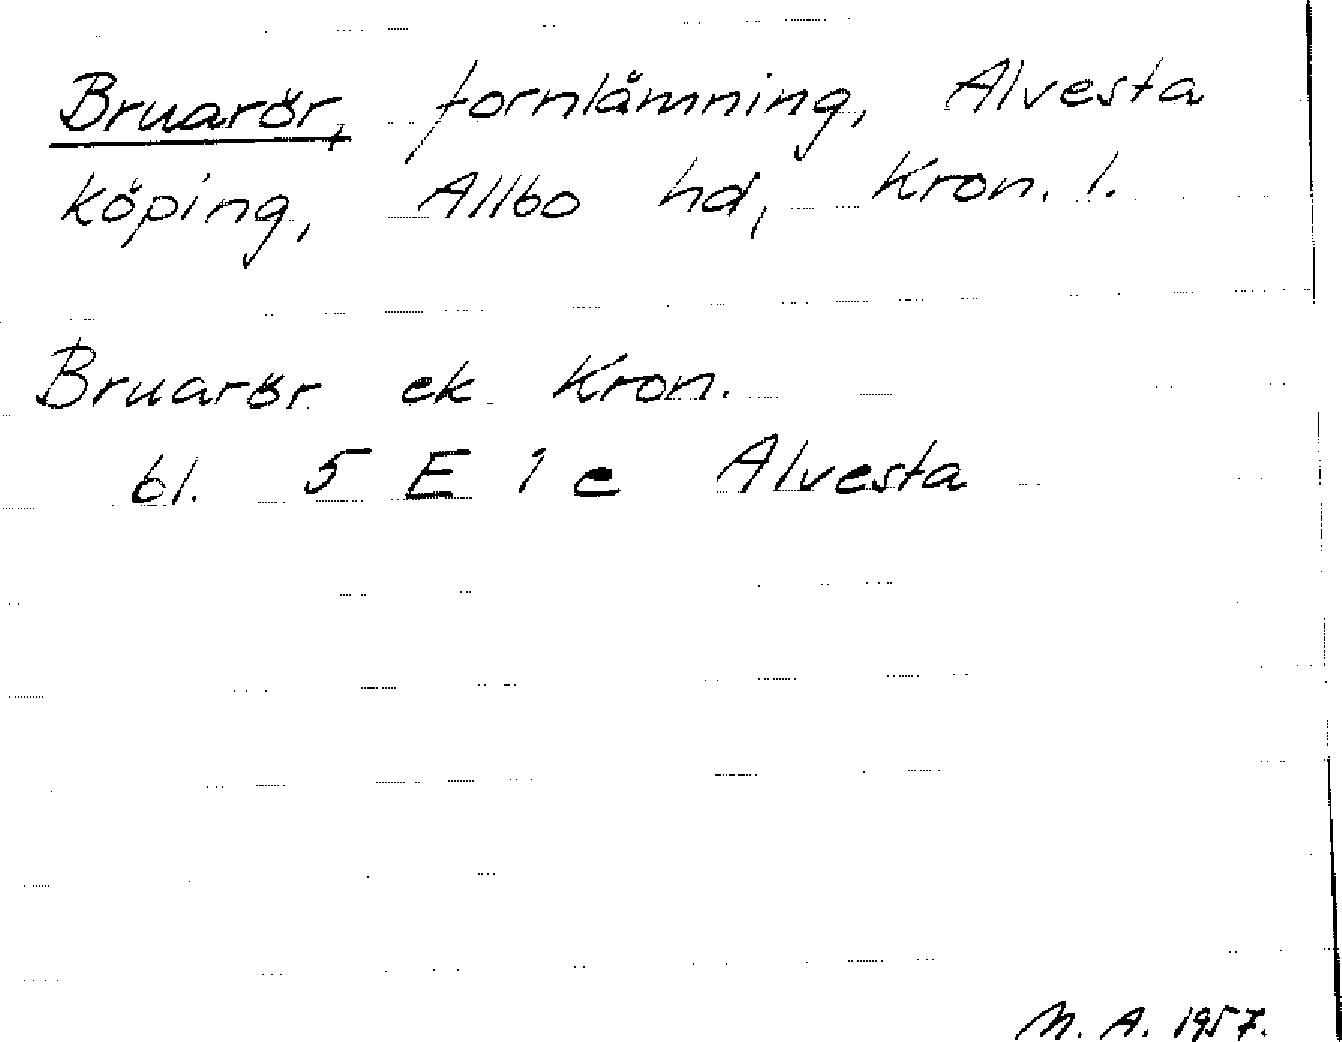 Bruarör, fornlämning, Alvesta
köping, Allbo hd, Kron. l.
Bruarör ek Kron.
bl. 5 E 1 e Alvesta
M. A. 1957.